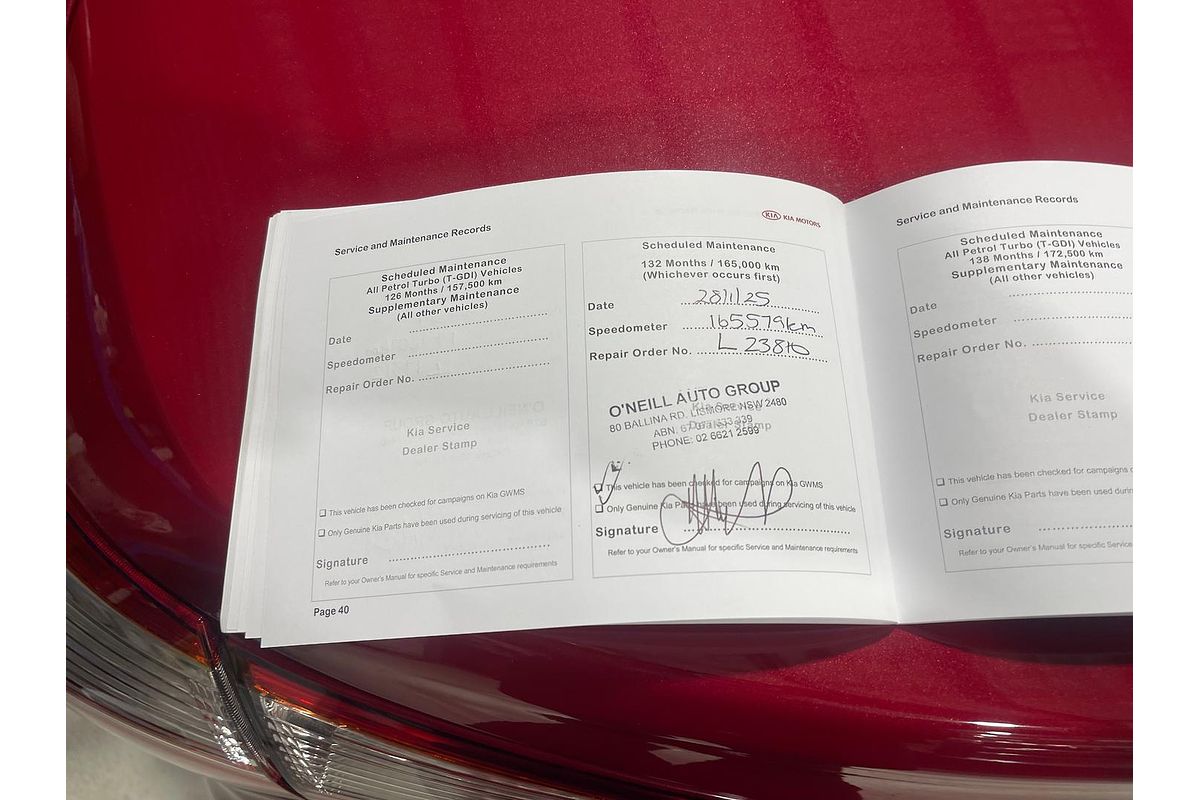 Service and Maintenance Records
Scheduled Maintenance
All Petrol Turbo (T-GDI) Vehicles
126 Months / 157,500 km
Supplementary Maintenance
(All other vehicles)
Date
Speedometer
Repair Order No.
Kia Service
Dealer Stamp
This vehicle has been checked for campaigns on Kia GWMS
Only Genuine Kia Parts have been used during servicing of this vehicle
Signature
Refer to your Owner's Manual for specific Service and Maintenance requirements
Page 40
KIA KIA MOTORS
Scheduled Maintenance
132 Months / 165,000 km
(Whichever occurs first)
Date 28/1/25
Speedometer 165579km
Repair Order No. L
O'NEILL AUTO GROUP
80 BALLINA RD. LISMORE NSW 2480
ABN.
PHONE: 02 6621 2599
Kia Service
Dealer Stamp
This vehicle has been checked for campaigns on Kia GWMS
Only Genuine Kia Parts have been used during servicing of this vehicle
Signature
Refer to your Owner's Manual for specific Service and Maintenance requirements
Service and Maintenance Records
Scheduled Maintenance
All Petrol Turbo (T-GDI) Vehicles
138 Months / 172,500 km
Supplementary Maintenance
(All other vehicles)
Date
Speedometer
Repair Order No.
Kia Service
Dealer Stamp
This vehicle has been checked for campaigns
Only Genuine Kia Parts have been used during
Signature
Refer to your Owner's Manual for specific Service